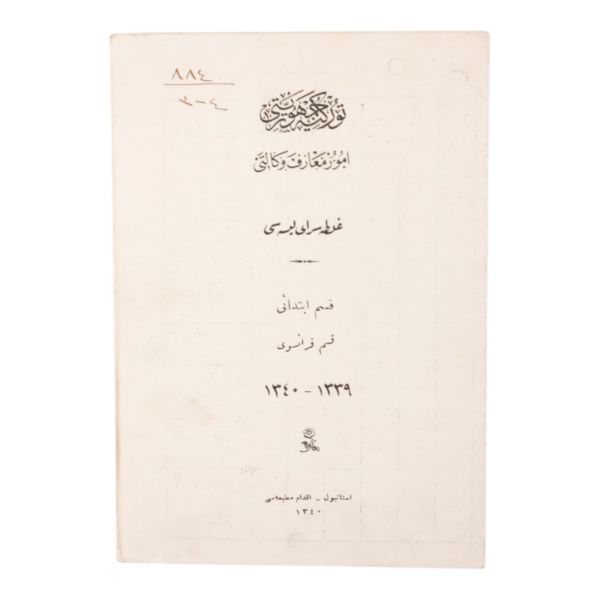 ٨٨٤
٣-٤
توركيه جمهوريتى
امور معارف وكالتى
غلطه سراى ليسه سى
قسم ابتدائى
قسم فرانسوى
١٣٣٩ - ١٣٤٠
استانبول - اقدام مطبعه سى
١٣٤٠